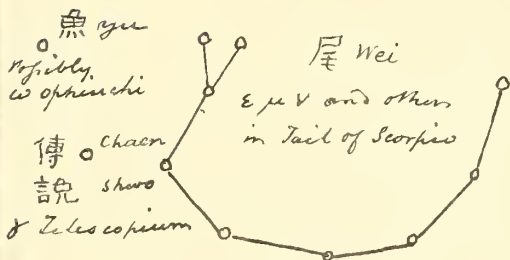 魚 yu
Possibly
ω ophiuchi
傳 Chaen
說 shwo
γ Telescopium
尾 Wei
ε μ ν and others
in Tail of Scorpio